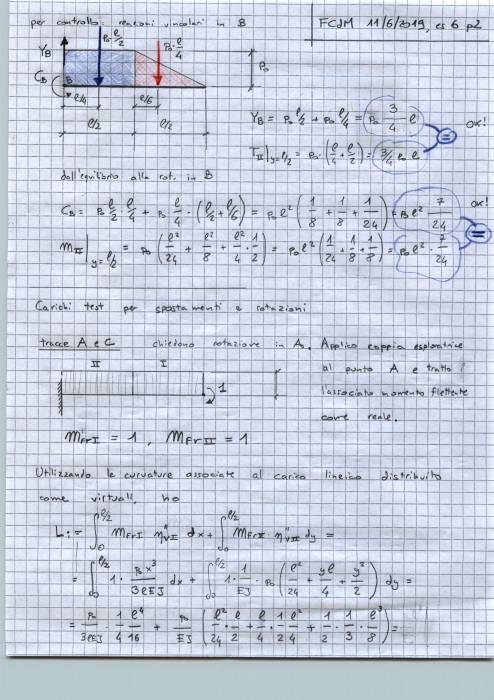 per controllo: reazioni vincolari in B
FCdM 11/6/2019, es 6 p2
p₀ ℓ/2
p₀·ℓ/4
Y_B
C_B
B
p₀
ℓ/4
ℓ/6
ℓ/2
ℓ/2
Y_B = p₀ ℓ/2 + p₀ ℓ/4 = p₀ 3/4 ℓ
OK!
T_II|y=ℓ/2 = p₀·(ℓ/4 + ℓ/2) = 3/4 p₀ ℓ
=
dall'equilibrio alla rot. in B
C_B = p₀ ℓ/2 ℓ/4 + p₀ ℓ/4 · (ℓ/2 + ℓ/6) = p₀ℓ² (1/8 + 1/8 + 1/24) = p₀ ℓ² 7/24
OK!
M_II|y=ℓ/2 = p₀ (ℓ²/24 + ℓ²/8 + ℓ²/4 · 1/2) = p₀ℓ² (1/24 + 1/8 + 1/8) = p₀ℓ² · 7/24
=
Carichi test per spostamenti e rotazioni
tracce A e C chiedono rotazione in A. Applico coppia esploratrice
al punto A e tratto
l'associato momento flettente
come reale.
II I
1
M_FrI = 1 , M_FrII = 1
Utilizzando le curvature associate al carico lineico distribuito
come virtuali, ho
Li = ∫₀^ℓ/2 M_FrI η''_vI dx + ∫₀^ℓ/2 M_FrII · η''_vII dy =
= ∫₀^ℓ/2 1 · p₀x³/3ℓEJ dx + ∫₀^ℓ/2 1 · 1/EJ · p₀ (ℓ²/24 + yℓ/4 + y²/2) dy =
= p₀/3ℓEJ · 1/4 ℓ⁴/16 + p₀/EJ (ℓ²/24 · ℓ/2 + ℓ/4 · 1/2 ℓ²/4 + 1/2 · 1/3 · ℓ³/8) =